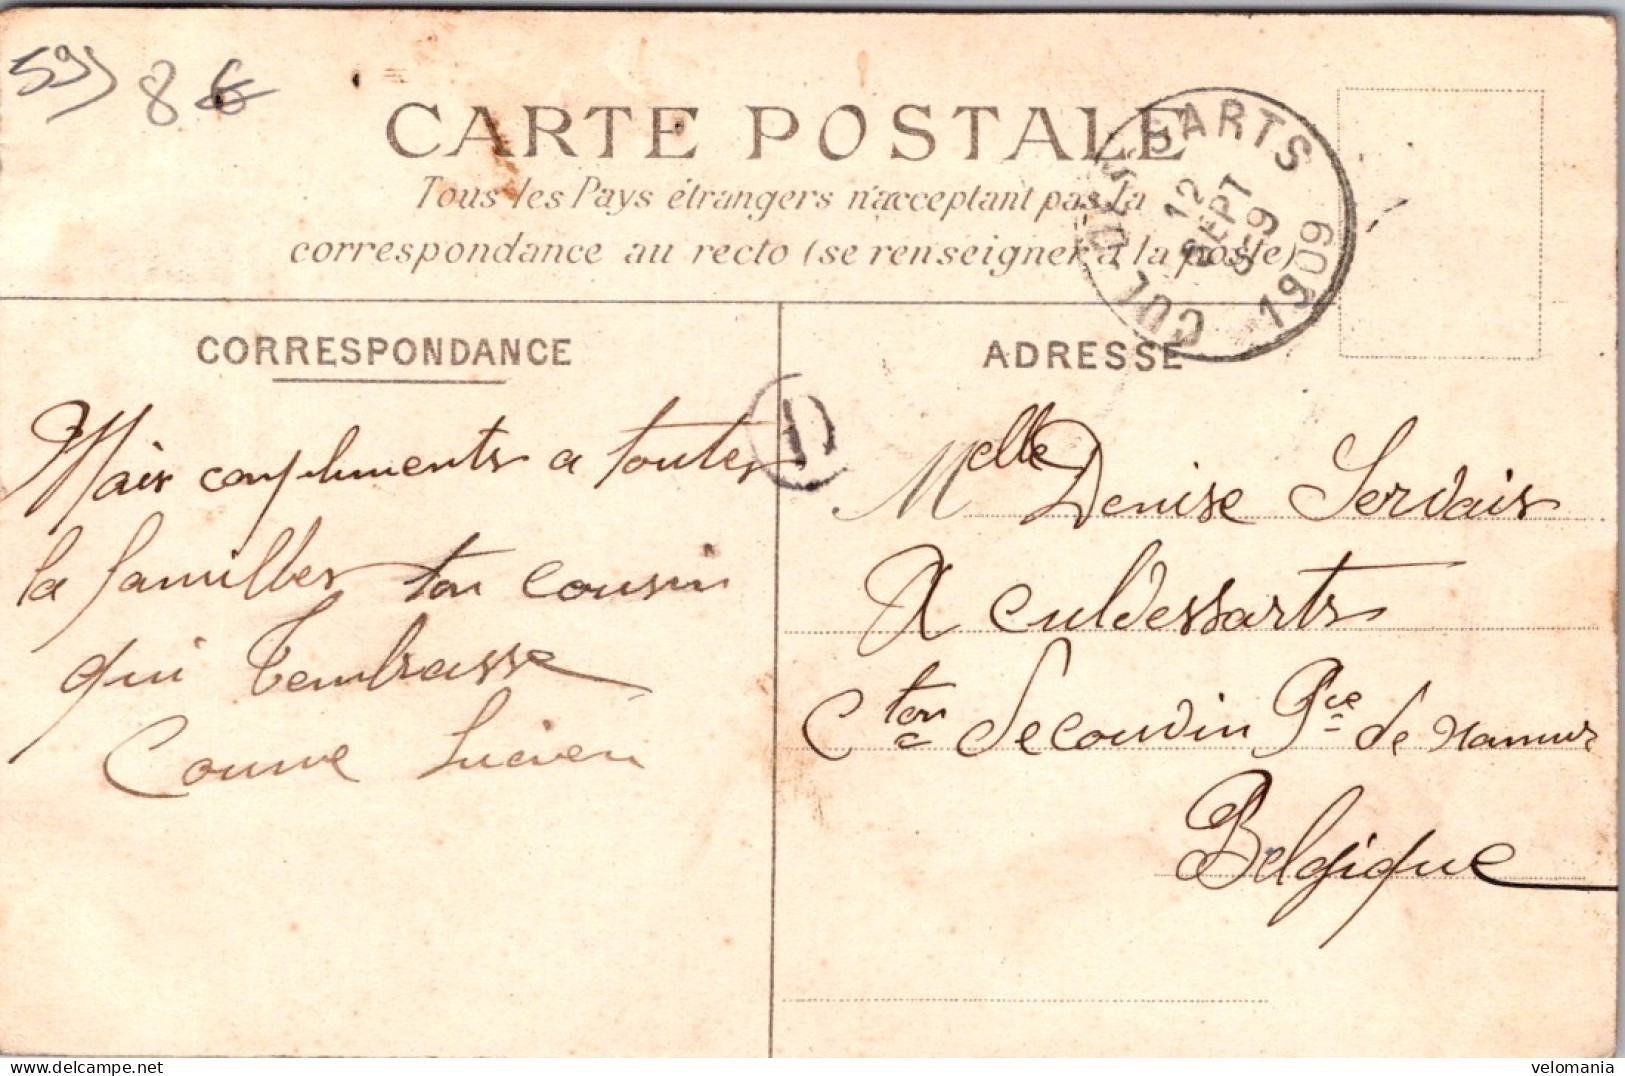 59) 8 €
CARTE POSTALE
Tous les Pays étrangers n'acceptant pas la
correspondance au recto (se renseigner à la poste)
CUL-DES-SARTS
12
SEPT
8-9
1909
CORRESPONDANCE
ADRESSE
D
Mais compliments a toutes
la familles ton cousin
qui t'embrasse
Lucien
Melle Denise Servais
A culdessarts
Cton de couvin Pce de Namur
Belgique
velomania